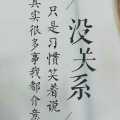 没关系
只是习惯笑着说
其实很多事我都介意